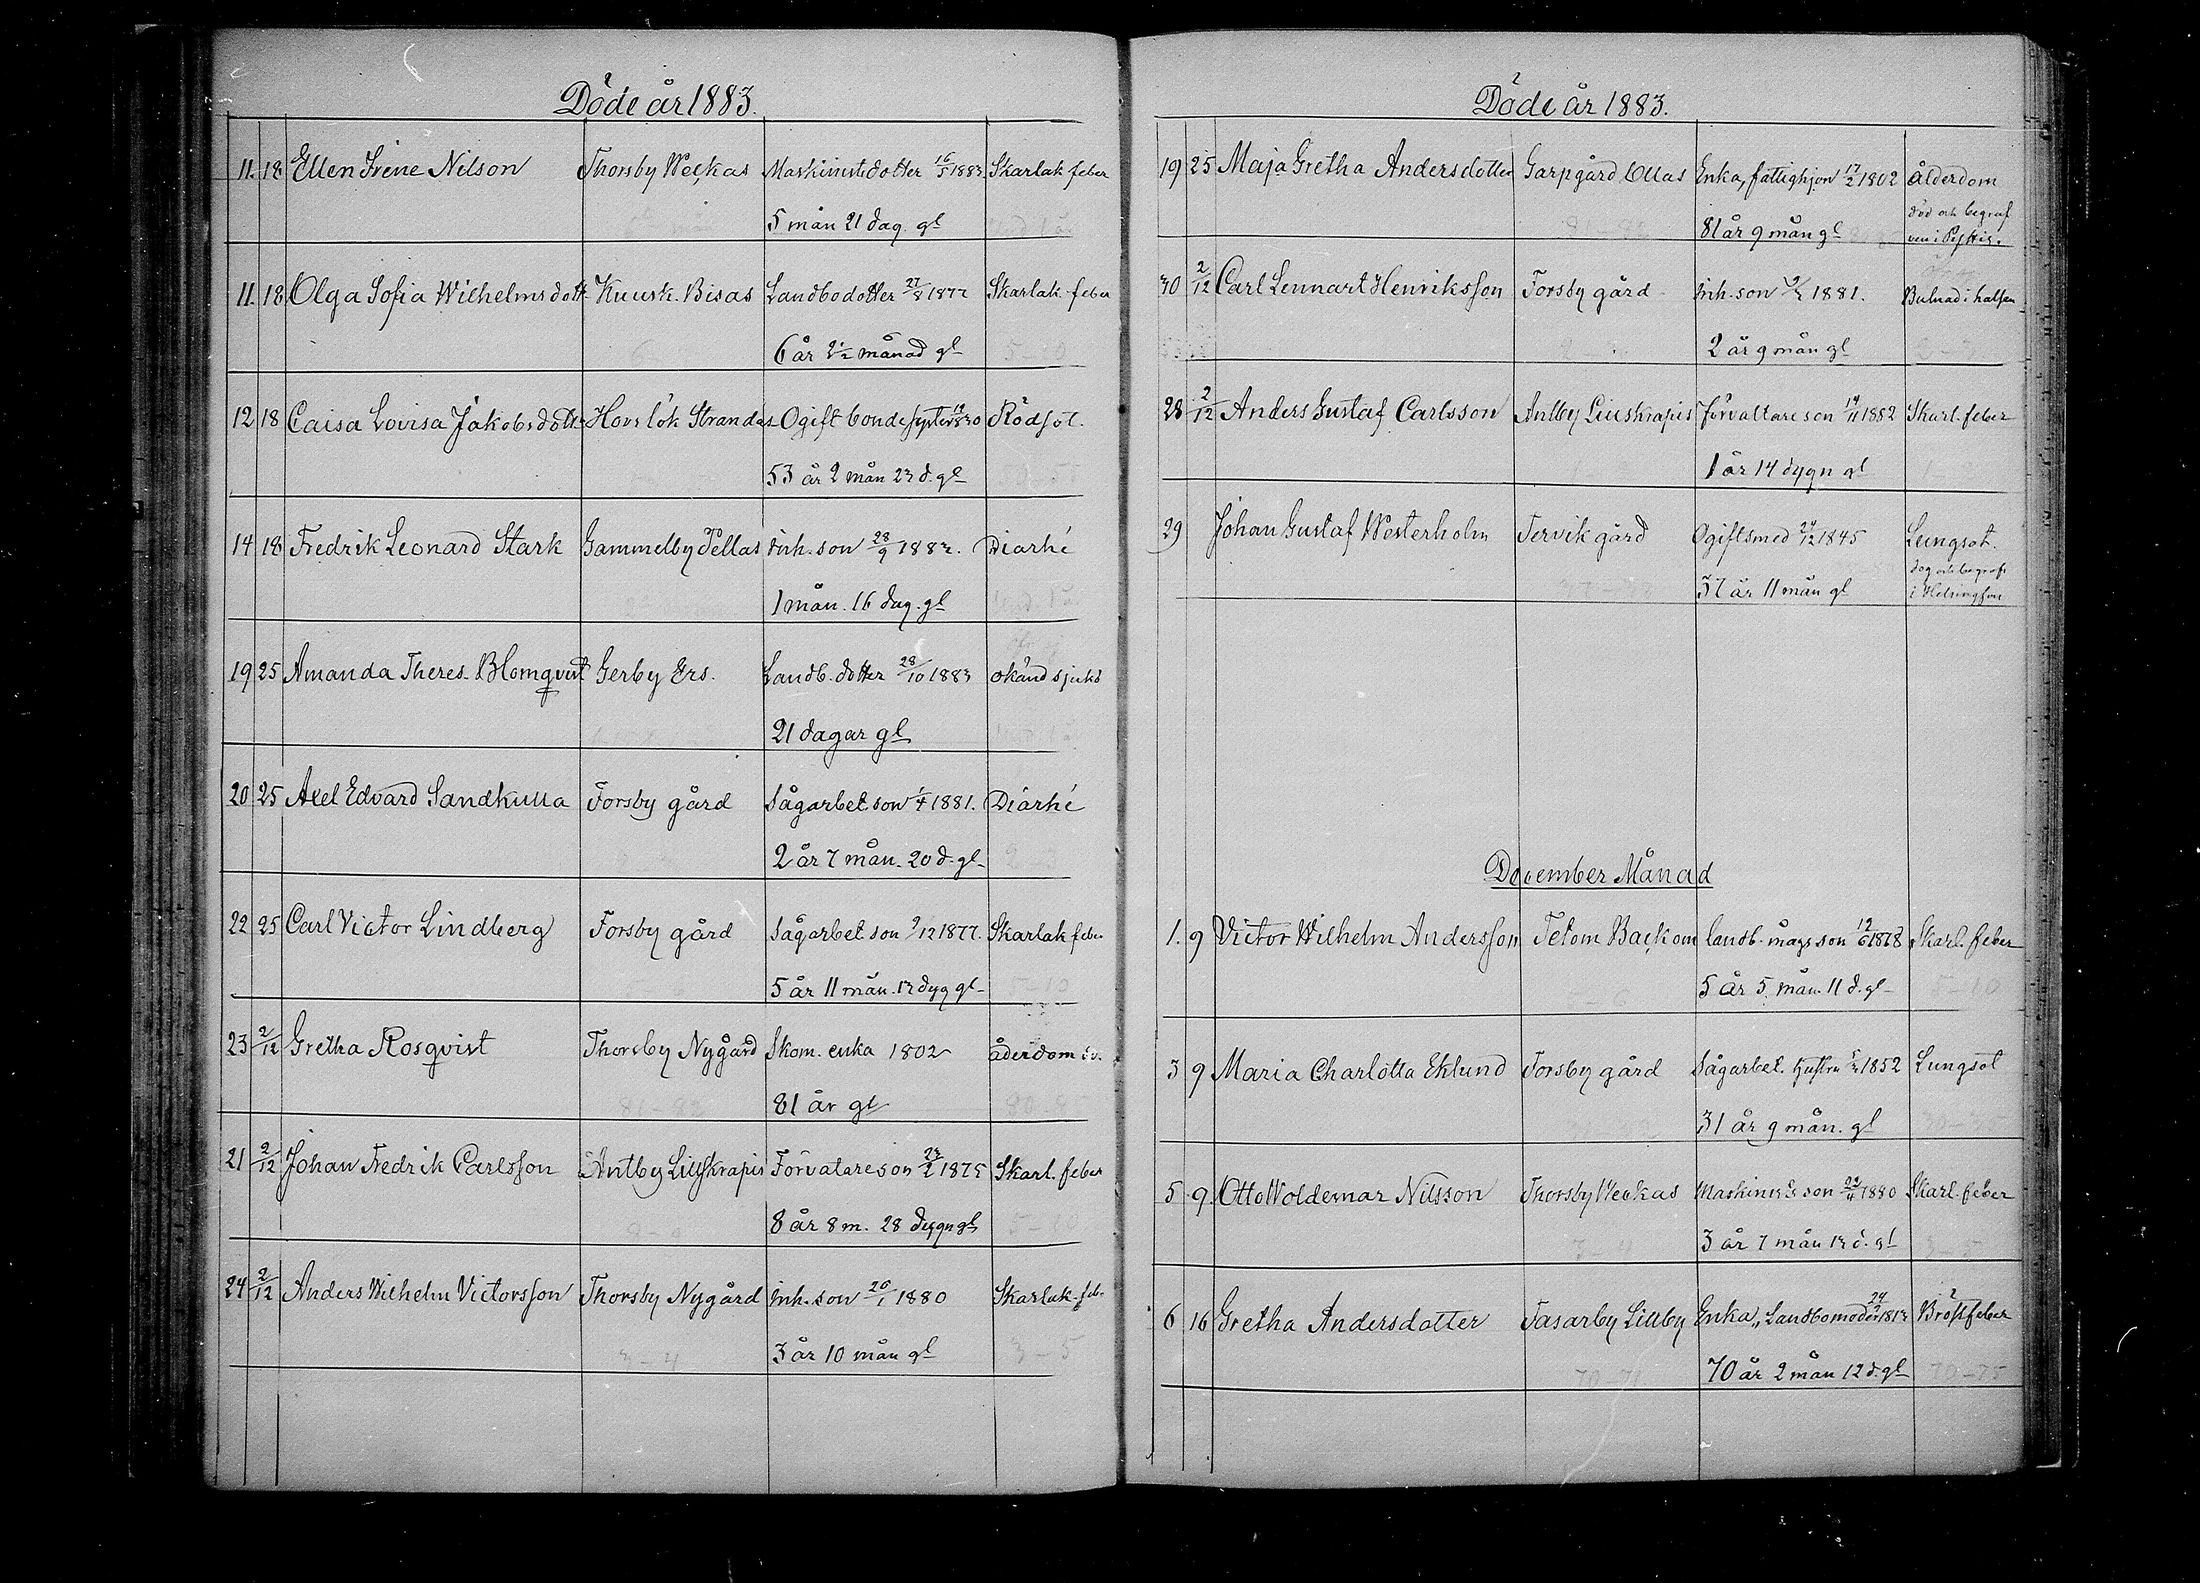 Döde år 1883.
11. 18 Ellen Irene Nilson Thorsby Weckas Maskinistdotter 16/5 1883 Skarlak feber
5 mån 21 dag. gl
11. 18 Olga Sofia Wilhelmsdott Kuusk. Bisas Landbodotter 27/8 1877 Skarlak-feber
6 år 2 1/2 månad gl
12 18 Caisa Lovisa Jakobsdott Hovslök Strandas Ogift bonde 1830 Rödsot.
53 år 2 mån 23 d. gl
14 18 Fredrik Leonard Stark Gammelby Tellas Inh. son 28/9 1883. Diarhé
1 mån. 16 dag. gl
19 25 Amanda Theres. Blomqvist Gerby Ers. Landb. dotter 28/10 1883 okänd sjukd
21 dagar gl
20 25 Axel Edvard Sandkulla Forsby gård Sågarbet. son 1/4 1881. Diarhé
2 år 7 mån. 20 d. gl
22 25 Carl Victor Lindberg Forsby gård Sågarbet son 9/12 1877. Skarlak feber
5 år 11 mån. 13 dyg gl
23 2/12 Gretha Rosqvist Thorsby Nygård Skom. enka 1802 åderdom sv.
81 år gl
21 2/12 Johan Fredrik Carlsson Antby Lillskrapis Förvatareson 23/2 1875 Skarl. feber
8 år 8 m. 28 dygn gl
24 2/12 Anders Wilhelm Victorsson Thorsby Nygård Inh. son 20/1 1880 Skarlak-feb.
3-4 3 år 10 mån gl 3-5
Döde år 1883.
19 25 Maja Gretha Andersdotter Garpgård Ollas Enka, fattighjon 17/2 1802 ålderdom
död och begraf
81 år 9 mån gl ven i
30 2/12 Carl Lennart Henriksson Forsby gård Inh. son 1881. Bulnad i halsen
2 år 9 mån gl
28 2/12 Anders Gustaf Carlsson Antby Liuskrapis förvaltare son 14/11 1882 Skarl. feber
1 år 14 dygn gl
29 Johan Gustaf Westerholm Tervik gård Ogift smed 24/12 1845 Lungsot.
dog och begrafs
37 år 11 mån gl i Helsingfors
December Månad
1. 9 Victor Wilhelm Andersson Tetom Backom landb. mågs son 19/6 1878 Skarl. feber
5 år 5 mån. 11 d. gl 5-10
3 9 Maria Charlotta Eklund Forsby gård Sågarbet. hustru 1852 Lungsot
31 år 9 mån. gl
5 9. Otto Woldemar Nilsson Thorsby Weckas Maskinists son 22/4 1880 Skarl. feber
3 år 7 mån 13 d. gl 3-5
6 16 Gretha Andersdotter Tasarby Lillby Enka, Landbomoder 24/9 1813 Bröstfeber
70-71 70 år 2 mån 12 d. gl 70-75